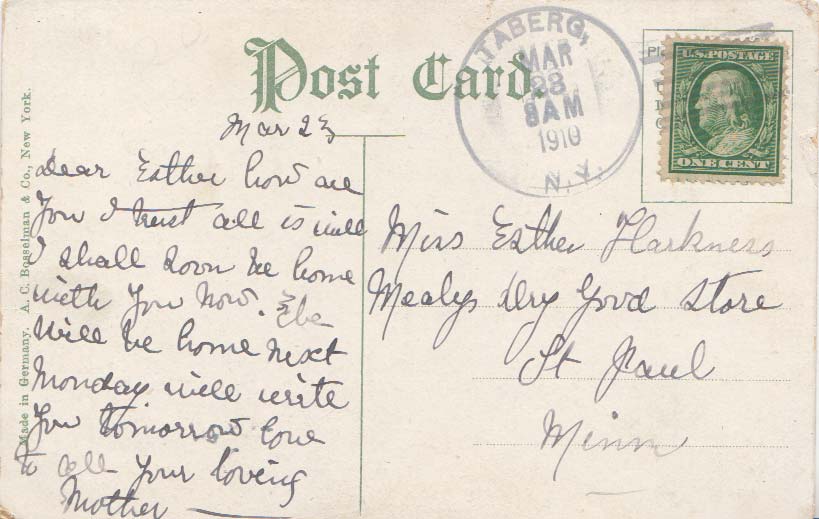 Post Card.
TABERG,
MAR
28
8 AM
1910
N.Y.
Pla
U.S. POSTAGE
ONE CENT
Made in Germany. A. C. Bosselman & Co., New York.
Mar 23
Dear Esther how are
you I trust all is well
I shall soon be home
with you now. Ebe
will be home next
Monday will write
you tomorrow love
to all your loving
Mother
Miss Esther Harkness
Mealys Dry Good Store
St Paul
Minn